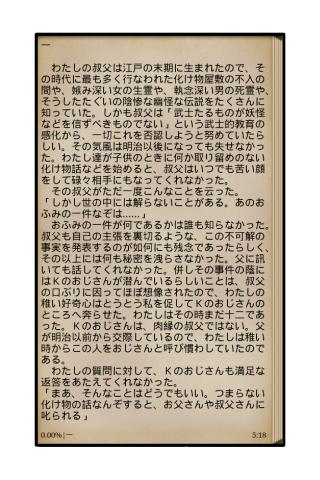 一
わたしの叔父は江戸の末期に生まれたので、そ
の時代に最も多く行なわれた化け物屋敷の不入の
間や、嫉み深い女の生霊や、執念深い男の死霊や、
そうしたたぐいの陰惨な幽怪な伝説をたくさんに
知っていた。しかも叔父は「武士たるものが妖怪
などを信ずべきものでない」という武士的教育の
感化から、一切これを否認しようと努めていたら
しい。その気風は明治以後になっても失せなかっ
た。わたし達が子供のときに何か取り留めのない
化け物話などを始めると、叔父はいつでも苦い顔
をして碌々相手にもなってくれなかった。
その叔父がただ一度こんなことを云った。
「しかし世の中には解らないことがある。あのお
ふみの一件なぞは......」
おふみの一件が何であるかは誰も知らなかった。
叔父も自己の主張を裏切るような、この不可解の
事実を発表するのが如何にも残念であったらしく、
それ以上には何も秘密を洩らさなかった。父に訊
いても話してくれなかった。併しその事件の蔭に
はＫのおじさんが潜んでいるらしいことは、叔父
の口ぶりに因ってほぼ想像されたので、わたしの
稚い好奇心はとうとう私を促してＫのおじさんの
ところへ奔らせた。わたしはその時まだ十二であ
った。Ｋのおじさんは、肉縁の叔父ではない。父
が明治以前から交際しているので、わたしは稚い
時からこの人をおじさんと呼び慣わしていたので
ある。
わたしの質問に対して、Ｋのおじさんも満足な
返答をあたえてくれなかった。
「まあ、そんなことはどうでもいい。つまらない
化け物の話なんぞすると、お父さんや叔父さんに
叱られる」
0.00%|一
5:18